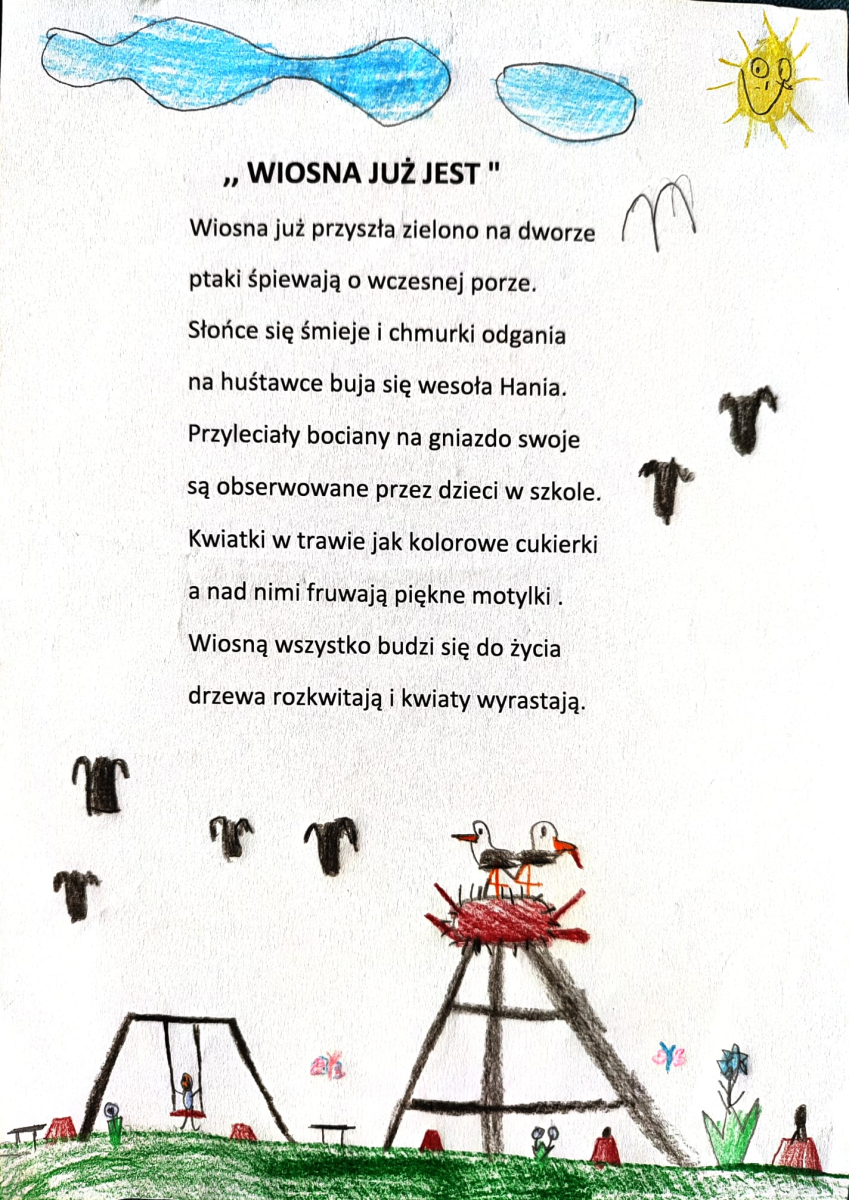 ,, WIOSNA JUŻ JEST "
Wiosna już przyszła zielono na dworze
ptaki śpiewają o wczesnej porze.
Słońce się śmieje i chmurki odgania
na huśtawce buja się wesoła Hania.
Przyleciały bociany na gniazdo swoje
są obserwowane przez dzieci w szkole.
Kwiatki w trawie jak kolorowe cukierki
a nad nimi fruwają piękne motylki .
Wiosną wszystko budzi się do życia
drzewa rozkwitają i kwiaty wyrastają.